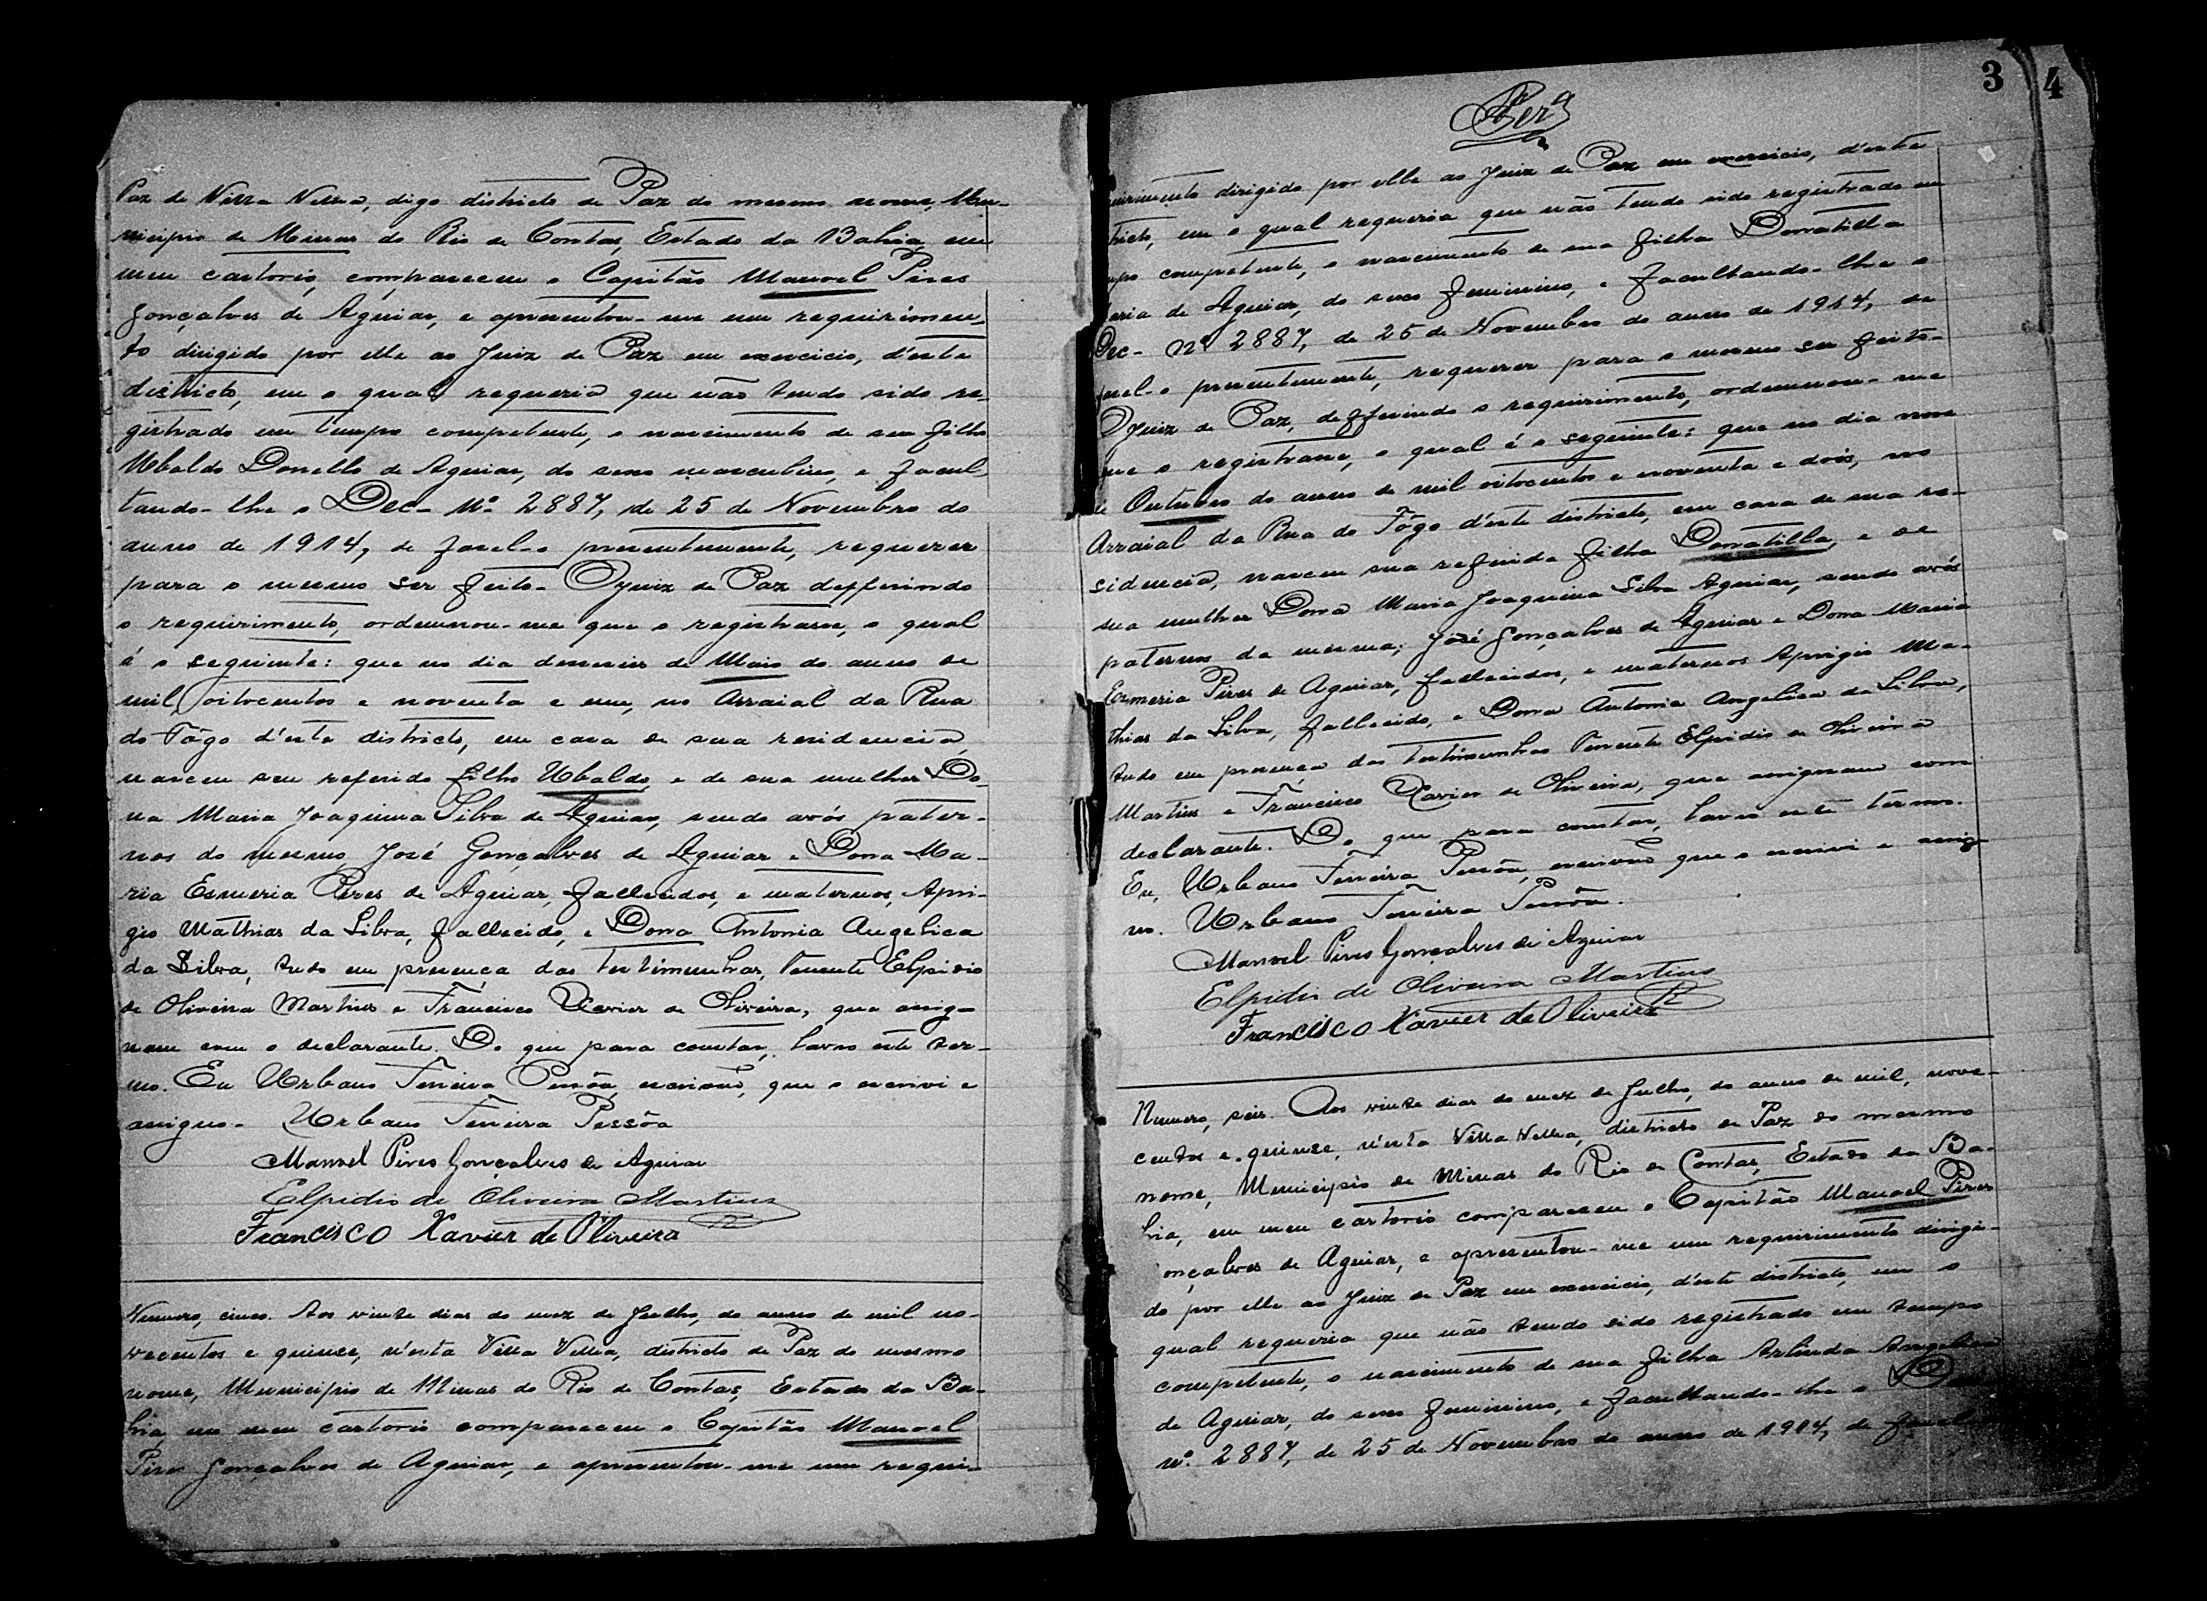 Paz de Villa Velha, digo districto de Paz do mesmo nome, Mu-
nicipio de Minas do Rio de Contas, Estado da Bahia, em
meu cartorio, compareceu o Capitão Manoel Pires
Gonçalves de Aguiar, e apresentou-me um requirimen-
to dirigido por elle ao Juiz de Paz em exercicio, d'este
districto, em o qual requeria que não tendo sido re-
gistrado em tempo competente, o nascimento de seu filho
Ubaldo Donello de Aguiar, do sexo masculino, e facul-
tando-lhe o Dec- Nº 2887, de 25 de Novembro do
anno de 1914, de fasel-o presentemente, requerer
para o mesmo ser feito- O Juiz de Paz defferindo
o requirimento, ordennou-me que o registrasse, o qual
é o seguinte: que no dia deseseis de Maio do anno de
mil oitocentos e noventa e um, no Arraial da Rua
do Fôgo d'este districto, em casa de sua residencia,
nasceu seu referido filho Ubaldo, e de sua mulher Do
na Maria Joaquina Silva de Aguiar, sendo avós pater-
nos do mesmo, José Gonçalves de Aguiar e Dona Ma-
ria Esmeria Pires de Aguiar, fallecidos, e maternos, Apri-
gio Mathias da Silva, fallecido, e Dona Antonia Angelica
da Silva, tudo em presença das testimunhas, Tenente Elpidio
de Oliveira Martins e Francisco Xavier de Oliveira, que assig-
nam com o declarante. Do que para constar, lavro este ter-
mo. Eu Urbano Ferreira Pessôa, escrivão, que o escrivi e
assigno- Urbano Ferreira Pessôa
Manoel Pires Gonçalves de Aguiar
Elpidio de Oliveira Martins
Francisco Xavier de Oliveira
Numero, cinco. Aos vinte dias do mez de Julho, do anno de mil no-
vecentos e quinse, n'esta Villa Velha, districto de Paz do mesmo
nome, Municipio de Minas do Rio de Contas, Estado da Ba-
hia, em meu cartorio compareceu o Capitão Manoel
Pires Gonçalves de Aguiar, e apresentou-me um requi-
3
4
uirimento dirigido por elle ao Juiz de Paz em exercicio, d'este
tricto, em o qual requeria que não tendo sido registrado em
mpo competente, o nascimento de sua filha Donatilla
eria de Aguiar, do sexo feminino, e facultando-lhe o
Dec- Nº 2887, de 25 de Novembro do anno de 1914, de
fasel-o presentemente, requerer para o mesmo ser feito-
O Juiz de Paz, defferindo o requirimento, ordennou-me
que o registrasse, o qual é o seguinte: que no dia nove
de Outubro do anno de mil oitocentos e noventa e dois, no
Arraial da Rua do Fôgo d'este districto, em casa de sua re-
sidencia, nasceu sua referida filha Donatilla, e de
sua mulher Dona Maria Joaquina Silva Aguiar, sendo avós
paternos da mesma; José Gonçalves de Aguiar e Dona Maria
Esmeria Pires de Aguiar, fallecidos, e maternos Aprigio Ma-
thias da Silva, fallecido, e Dona Antonia Angelica da Silva,
tudo em presença das testimunhas Tenente Elpidio de Oliveira
Martins e Francisco Xavier de Oliveira, que assignam com
declarante. Do que para constar, lavro este termo.
Eu, Urbano Ferreira Pessôa, escrivão que o escrivi e assig-
no. Urbano Ferreira Pessôa.
Manoel Pires Gonçalves de Aguiar
Elpidio de Oliveira Martins
Francisco Xavier de Oliveira
Numero, seis. Aos vinte dias do mez de Julho, do anno de mil, nove-
centos e quinse, n'esta Villa Velha, districto de Paz do mesmo
nome, Municipio de Minas do Rio de Contas, Estado da Ba-
hia, em meu cartorio compareceu o Capitão Manoel Pires
onçalves de Aguiar, e apresentou-me um requirimento dirigi-
do por elle ao Juiz de Paz em exercicio, d'este districto, em o
qual requeria que não tendo sido registrado em tempo
competente, o nascimento de sua filha Arlinda Angelica
de Aguiar, do sexo feminino, e facultando-lhe o D
nº. 2887, de 25 de Novembro do anno de 1914, de fasel